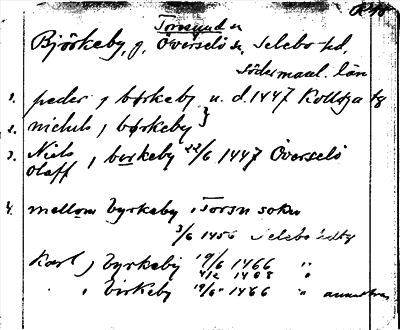 Torsunda sn
Björkeby, g. Överselö sn, Selebo hd,
Södermanl. län
1. peder j børkeby u. d. 1447
2. nichuls j børkeby }
3. Niels
Olaff j borkeby 22/6 1447 Överselö
4. mellom byrkeby i Torsn sokn
3/6 1456 Selebo
Karl j byrkeby 19/6 1466 "
4/2 1468 "
. i Birkeby 19/6 1466 "